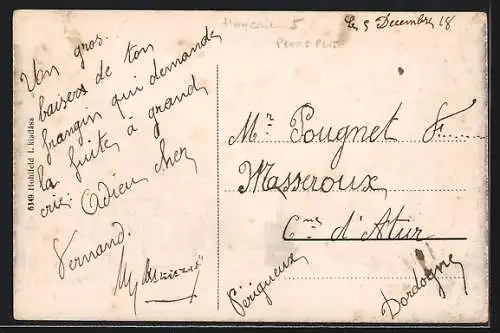 Hongrie 5
Le 5 Decembre 18
Un gros
baisers de ton
frangin qui demande
la fuite à grand
cri: Adieu chez
Fernand.
6149 Hohlfeld I. kiadása
Mr Pougnet F.
Masseroux
Cne d'Atur
Périgueux
Dordogne